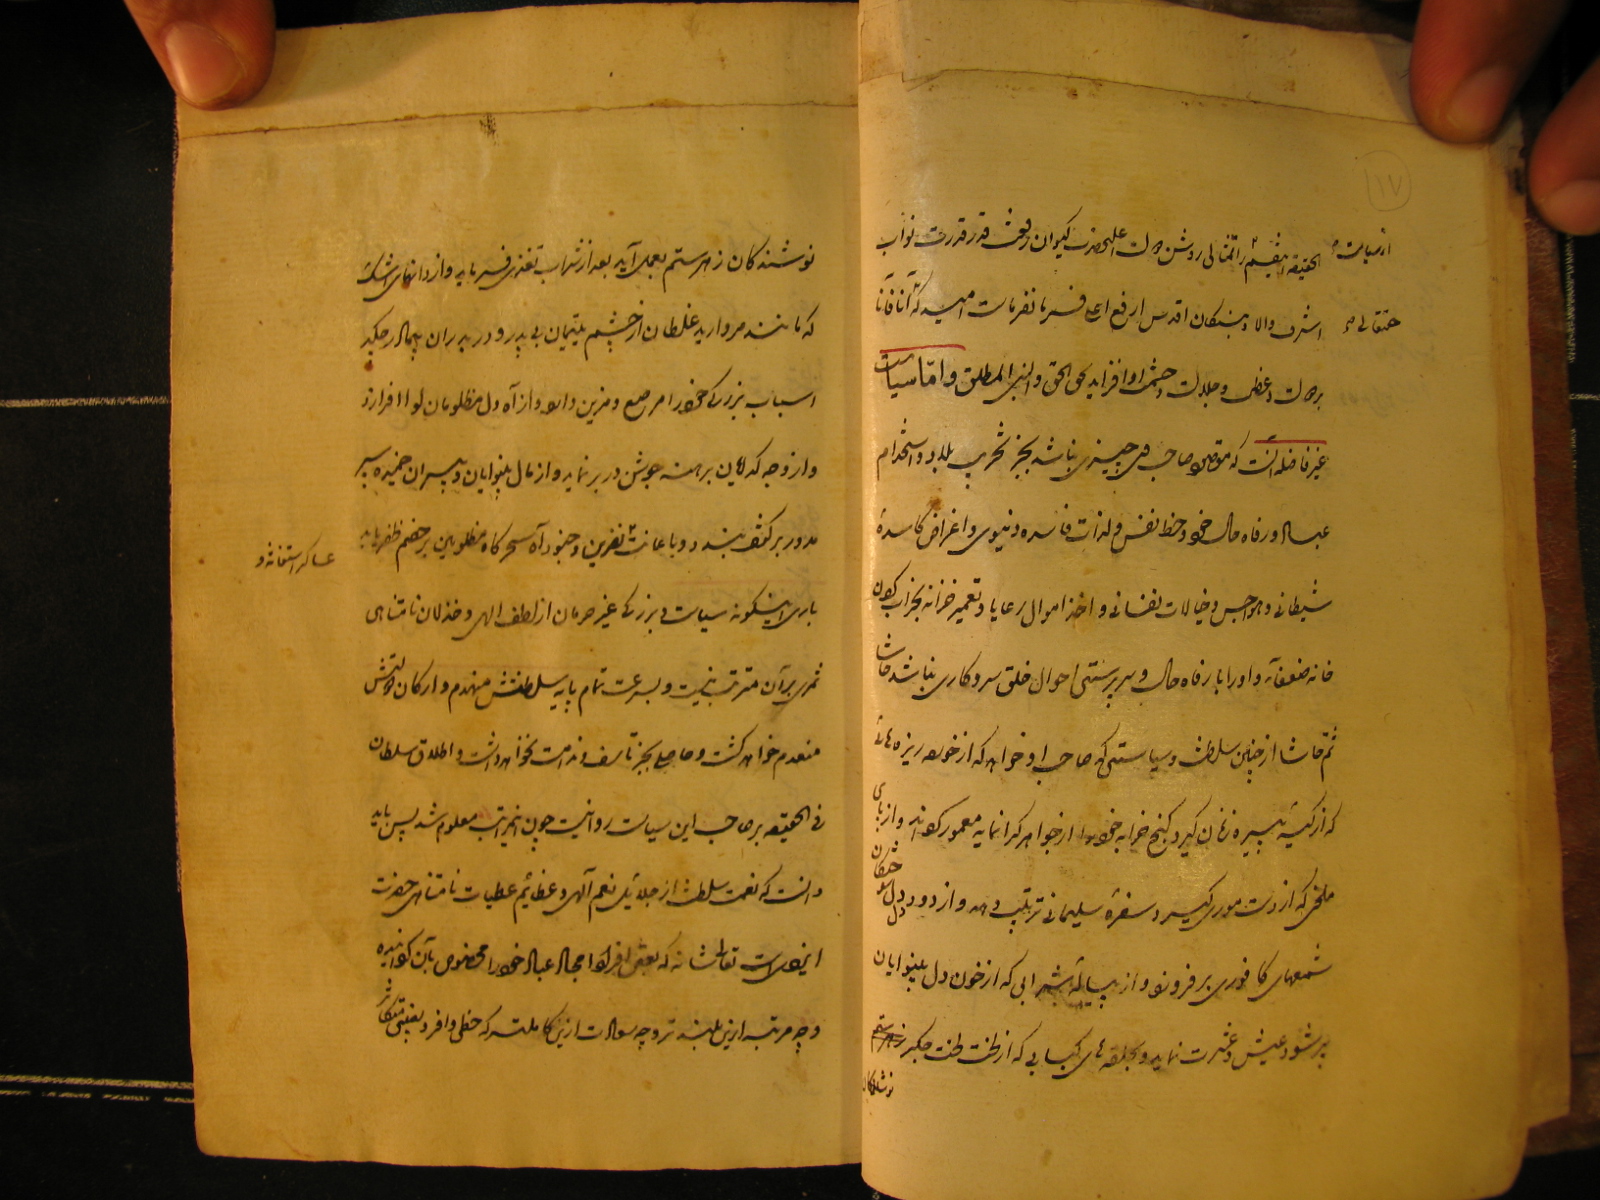 ۱۷
از سیاست
حقتعالی
روشن اعلیحضرت کیوان رفعت قدر قدرت نواب
اشرف والا بندگان اقدس ارفع فرمانفرماست امید که آنا فآنا
بر و عظمت و جلالت و حشمت او افزاید بحق الحق و النبی المطلق و اما سیاست
غیر فاضله آنست که مقصود صاحب وی چیزی نباشد بجز تخریب بلاد و استخدام
عباد و رفاه حال خود و حظ نفس و لذات فاسده دنیوی و اغراض کاسده
شیطانی و هواجس و خیالات نفسانی و اخذ اموال رعایا و تعمیر خزانه بخراب کردن
خانه ضعفاء و او را با رفاه حال و سرپرستی احوال خلق سر و کاری نباشد حاشا
ثم حاشا از چنین سلطنت و سیاستی که صاحب او خواهد که از خرده ریزه هائی
که از کیسه پیره زنان گیرد گنج خرابه خود را از جواهر گرانمایه معمور گرداند و از پای
ملخی که از دست موری گیرد سفره سلیمانی ترتیب دهد و از دود دل سوختگان
شمعهای کافوری برفروزد و از پیاله شرابی که از خون دل بینوایان
پر شود عیش و عشرت نماید و بلقمه های کبابی که از لخت لخت جگر
نوشندگان
نوشندگان زهر ستم بعمل آید بعد از شراب تغذی فرماید و از دانهای اشک
که مانند مروارید غلطان از چشم یتیمان بی پدر و در پدران چکد
اسباب بزرگی خود را مرصع و مزین دارد و از آه دل مظلومان لوا افرازد
و از وجه گدایان برهنه جوشن در بر نماید و از مال بینوایان و پیران خمیده سپر
مدور بر کتف بندد و باعانت نفرین و جنود آه سحرگاه مظلومین بر خصم ظفر یابد
عساکر استغاثه و
باری اینگونه سیاست و بزرگی غیر حرمان از لطف الهی و خذلان نامتناهی
ثمری بر آن مترتب نیست و بسرعت تمام پایه سلطنتش منهدم و ارکان دولتش
منعدم خواهد گشت و حاصلی بجز تأسف و ندامت نخواهد داشت و اطلاق سلطان
فی الحقیقه بر صاحب این سیاست روا نیست چون این مراتب معلوم شد پس باید
دانست که نعمت سلطنت از جلائل نعم الهی و عظائم عطیات نامتناهی حضرت
ایزدی است تعالی شانه که بعض افراد عباد خود را مخصوص بآن گردانیده
و چه مرتبه ازین بلندتر و چه سعادت ازین کاملتر که حظی وافر و نصیبی متکاثر